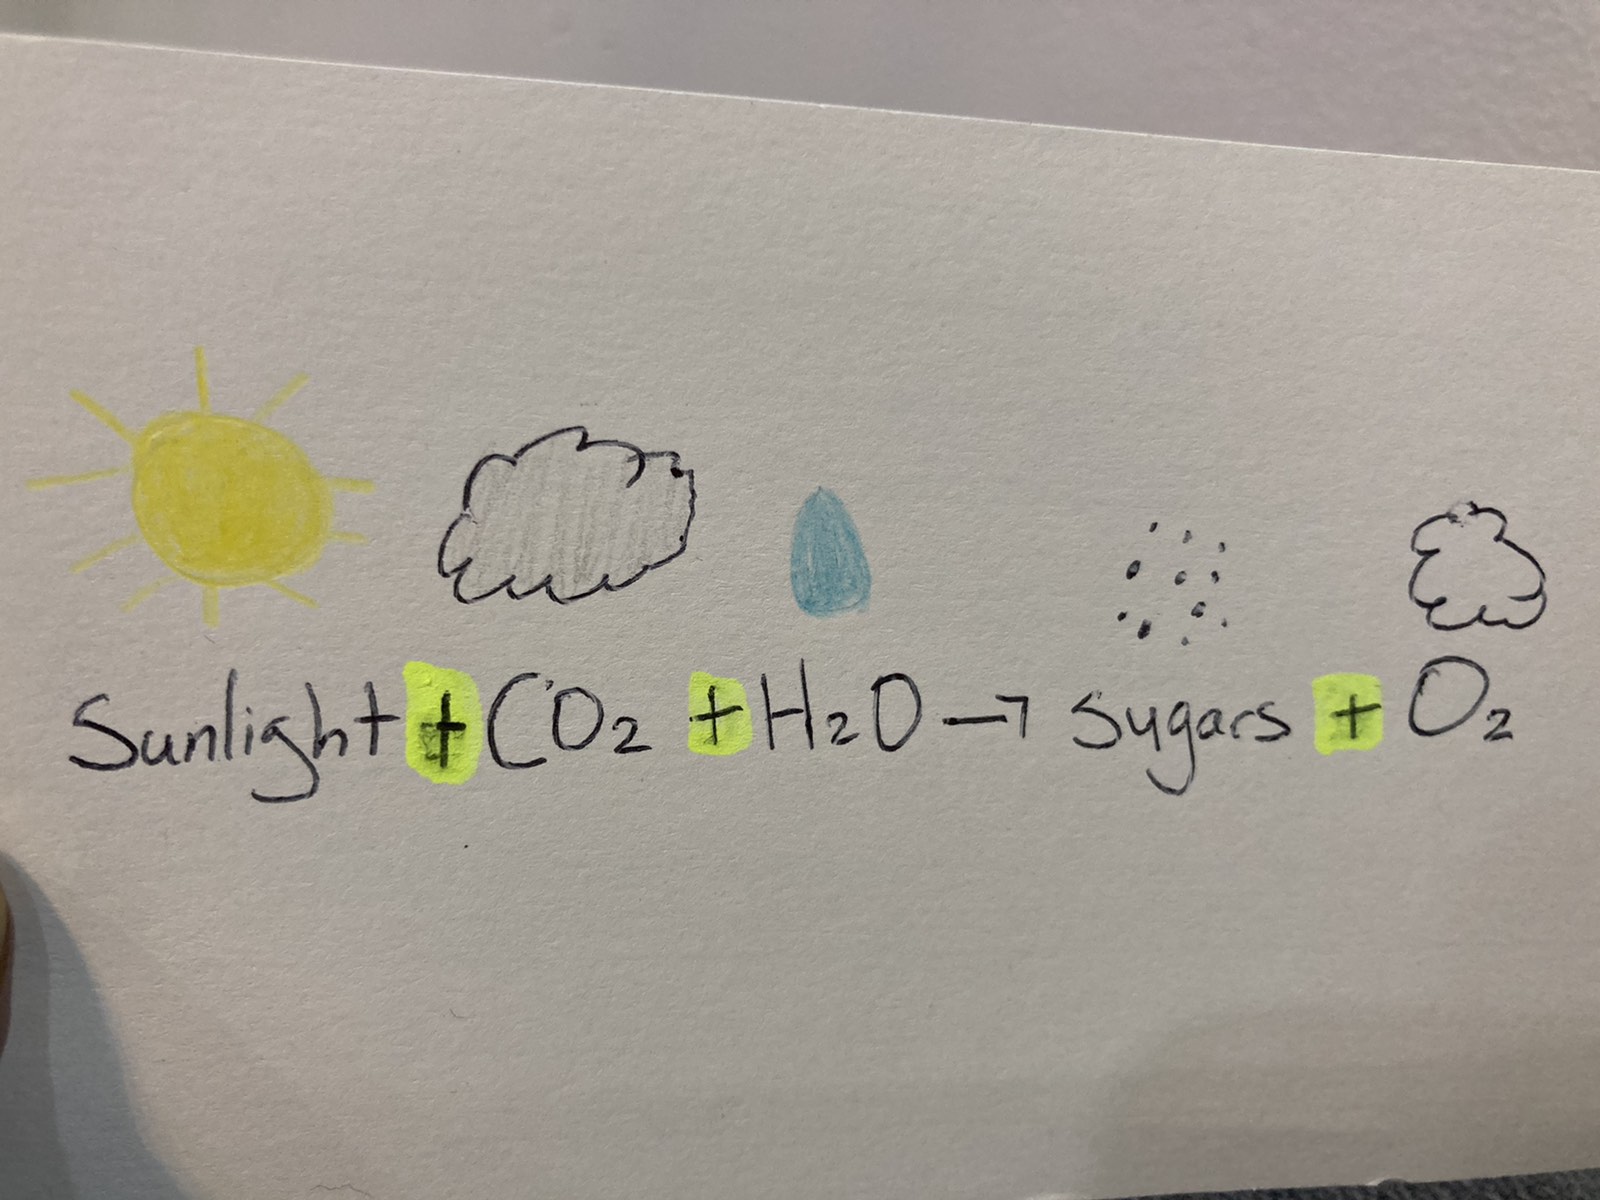 Sunlight + CO₂ + H₂O → sugars + O₂